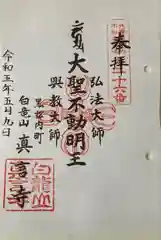 奉拝
弘法大師
大聖不動明王
興教大師
黒松内町
白竜山 真
言寺
令和五年五月九日
白龍山